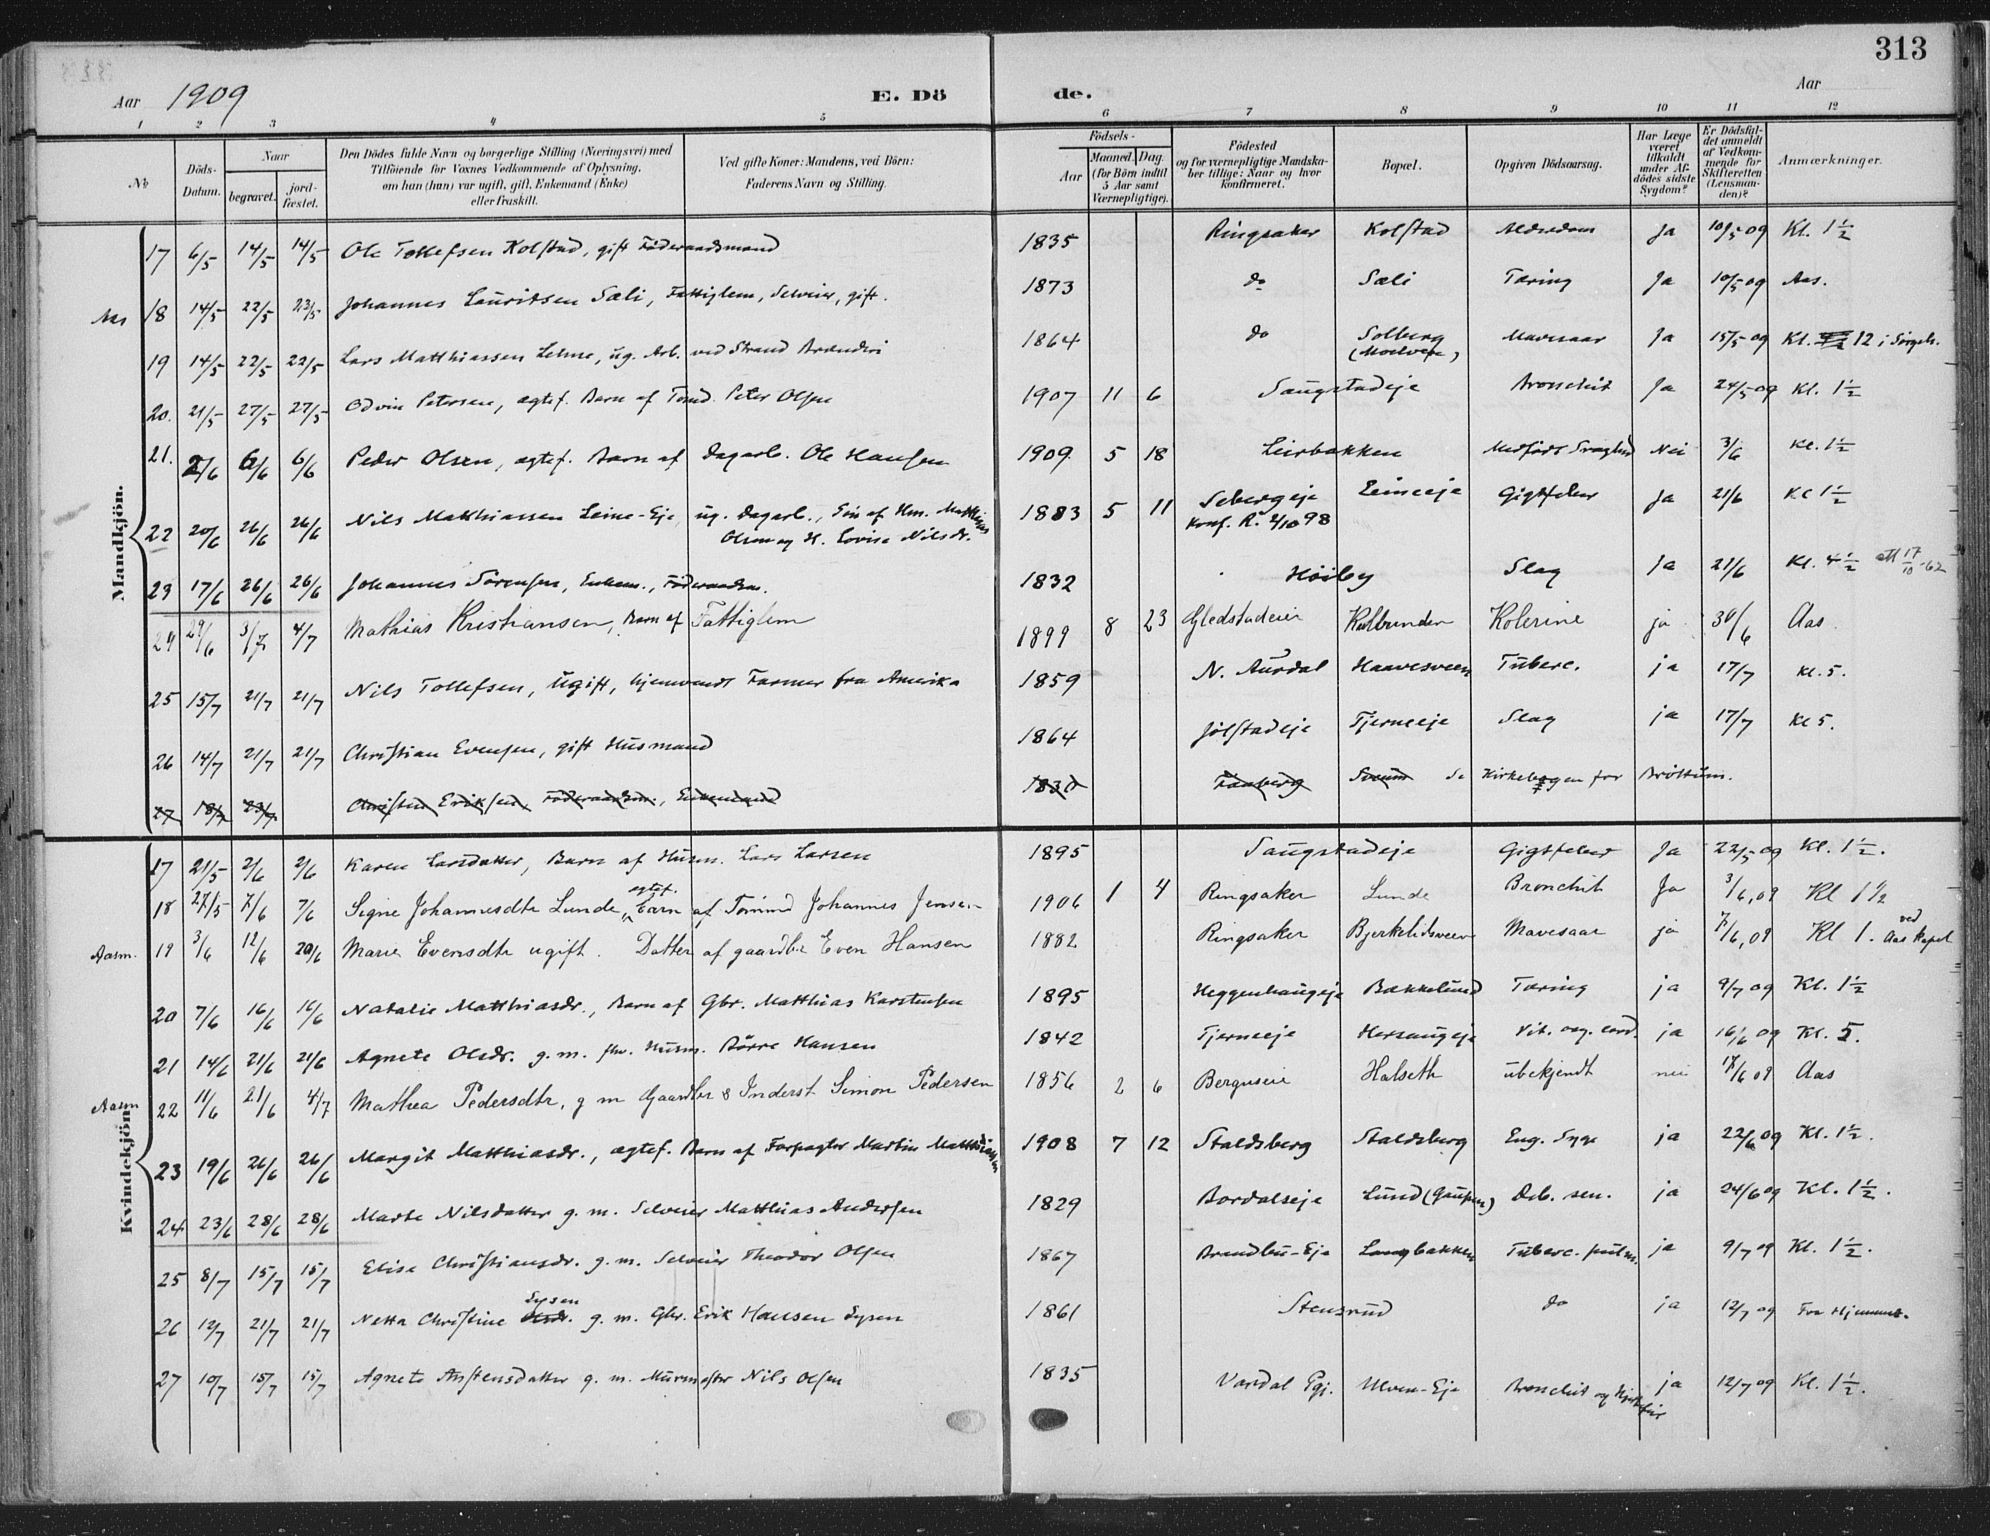 313
Aar 1909 E. Döde. Aar
1 2 3 4 5 6 7 8 9 10 11 12
No Döds-Datum. Naar begravet. jordfæstet. Den Dödes fulde Navn og borgerlige Stilling (Næringsvei) med Tilföiende for Voxnes Vedkommende af Oplysning, om han (hun) var ugift, gift, Enkemand (Enke) eller fraskilt. Ved gifte Koner: Mandens, ved Börn: Faderens Navn og Stilling. Födsels- Aar Maaned. Dag. (for Börn indtil 5 Aar samt Værnepligtige). Födested og for værnepligtige Mandskaber tillige: Naar og hvor konfirmeret. Bopæl. Opgiven Dödsaarsag. Har Læge været tilkaldt under Afdödes sidste Sygdom? Er Dödsfaldet anmeldt af Vedkommende for Skifteretten (Lensmanden)? Anmærkninger.
Mandkjön.
17 6/5 14/5 14/5 Ole Tollefsen Kolstad, gift Föderaadsmand 1835 Ringsaker Kolstad Alderdom Ja 10/5 09 Kl. 1½
Aas 18 14/5 22/5 23/5 Johannes Lauritsen Sæli, Fattiglem, Selveier, gift. 1873 do Sæli Tæring Ja 10/5 09 Aas.
19 14/5 22/5 22/5 Lars Matthiassen, ug. Arb. ved Strand Brænderi 1864 do Solberg (Moelven) Mavesaar Ja 15/5 09 Kl. 12 i
20. 21/5 27/5 27/5 Odvin Petersen, ægtef. Barn af Tömd. Peter Olsen 1907 11 6 Saugstadeje Bronchit Ja 24/5 09 Kl. 1½
21. 2/6 6/6 6/6 Peder Olsen, ægtef. Barn af Dagarb. Ole Hansen 1909 5 18 Leirbakken Medfödt Svaghed Nei 3/6 Kl. 1½
22 20/6 26/6 26/6 Nils Matthiassen Leine-Eje, ug. Dagarb., Sön af Hm. Matthias Olsen og H. Lovise Nilsdr. 1883 5 11 Sebergeje Konf. R. 2/10 98 Leineeje Gigtfeber Ja 21/6 Kl 1½
23 17/6 26/6 26/6 Johannes Sörensen, Enkem., Föderaadsm. 1832 Höiby Slag Ja 21/6 Kl. 4½ att 17/10-62
24 29/6 3/7 4/7 Mathias Kristiansen, Barn af Fattiglem 1899 8 23 Gledstadeier Kulbunden Kolerine ja 30/6 Aas.
25 15/7 21/7 21/7 Nils Tollefsen, ugift, hjemvendt Farmer fra Amerika 1859 N. Aurdal Haavesveen Tuberc. ja 17/7 Kl. 5.
26 14/7 21/7 21/7 Christian Evensen, gift Husmand 1864 Jölstadeje Tjerneeje Slag ja 17/7 Kl 5.
27 18/7 23/7 Christen Eriksen, Föderaadsm., Enkemand 1830 Faaberg Sveum Se Kirkebogen for Bröttum.
Kvindekjön.
17 21/5 2/6 2/6 Karen Larsdatter, Barn af Husm. Lars Larsen 1895 Saugstadeje Gigtfeber Ja 22/5 09 Kl. 1½.
18 27/5 7/6 7/6 Signe Johannesdtr Lunde, ægtef. Barn af Tömmd Johannes Jensen 1906 1 4 Ringsaker Lunde Bronchit Ja 3/6, 09 Kl 1½
Aasm. 19 3/6 12/6 20/6 Marie Evensdtr ugift. Datter af gaardbr Even Hansen 1882 Ringsaker Bjerkelidsveen Mavesaar ja 7/6, 09 Kl 1. ved Aas Kapel
20 7/6 16/6 16/6 Natalie Matthiasdr., Barn af Gbr. Matthias Karstensen 1895 Heggenhaugeje Bækkelund Tæring ja 9/7 09 Kl. 1½
21 14/6 21/6 21/6 Agnete Olsdr. g. m. fhv. Husm. Börre Hansen 1842 Tjerneeje Hersaugeje Vit. org. cord. ja 16/6 09 Kl. 5.
Aasm 22 11/6 21/6 4/7 Mathea Pedersdtr, g m Gaardbr & Inderst Simon Pedersen 1856 2 6 Berguseie Halseth ubekjendt nei 17/6 09 Aas
23 19/6 26/6 26/6 Margit Matthiasdr., ægtef. Barn af Forpagter Martin Matthiassen 1908 7 12 Staldsberg Staldsberg Eng. Syge ja 22/6 09 Kl. 1½.
24 23/6 28/6 28/6 Marte Nilsdatter g. m. Selveier Matthias Andersen 1829 Bordalseje Lund (Gaupen) Deb. sen. ja 24/6 09 Kl. 1½.
25 8/7 15/7 15/7 Elise Christiansdr. g. m. Selveier Theodor Olsen 1867 Brendbu-Eje Langbakken Tuberc. pulm. ja 9/7 09 Kl. 1½.
26 12/7 21/7 21/7 Netta Christine Olsdr. Sysen g. m. Gbr. Erik Hansen Sysen 1861 Stensrud do ja 12/7 09 Fra Hjemmet.
27 10/7 15/7 15/7 Agnete Anstensdatter g. m. Murmester Nils Olsen 1835 Vardal Pgj. Ulven-Eje Bronchit og Hjertefeil ja 12/7 09 Kl. 1½.